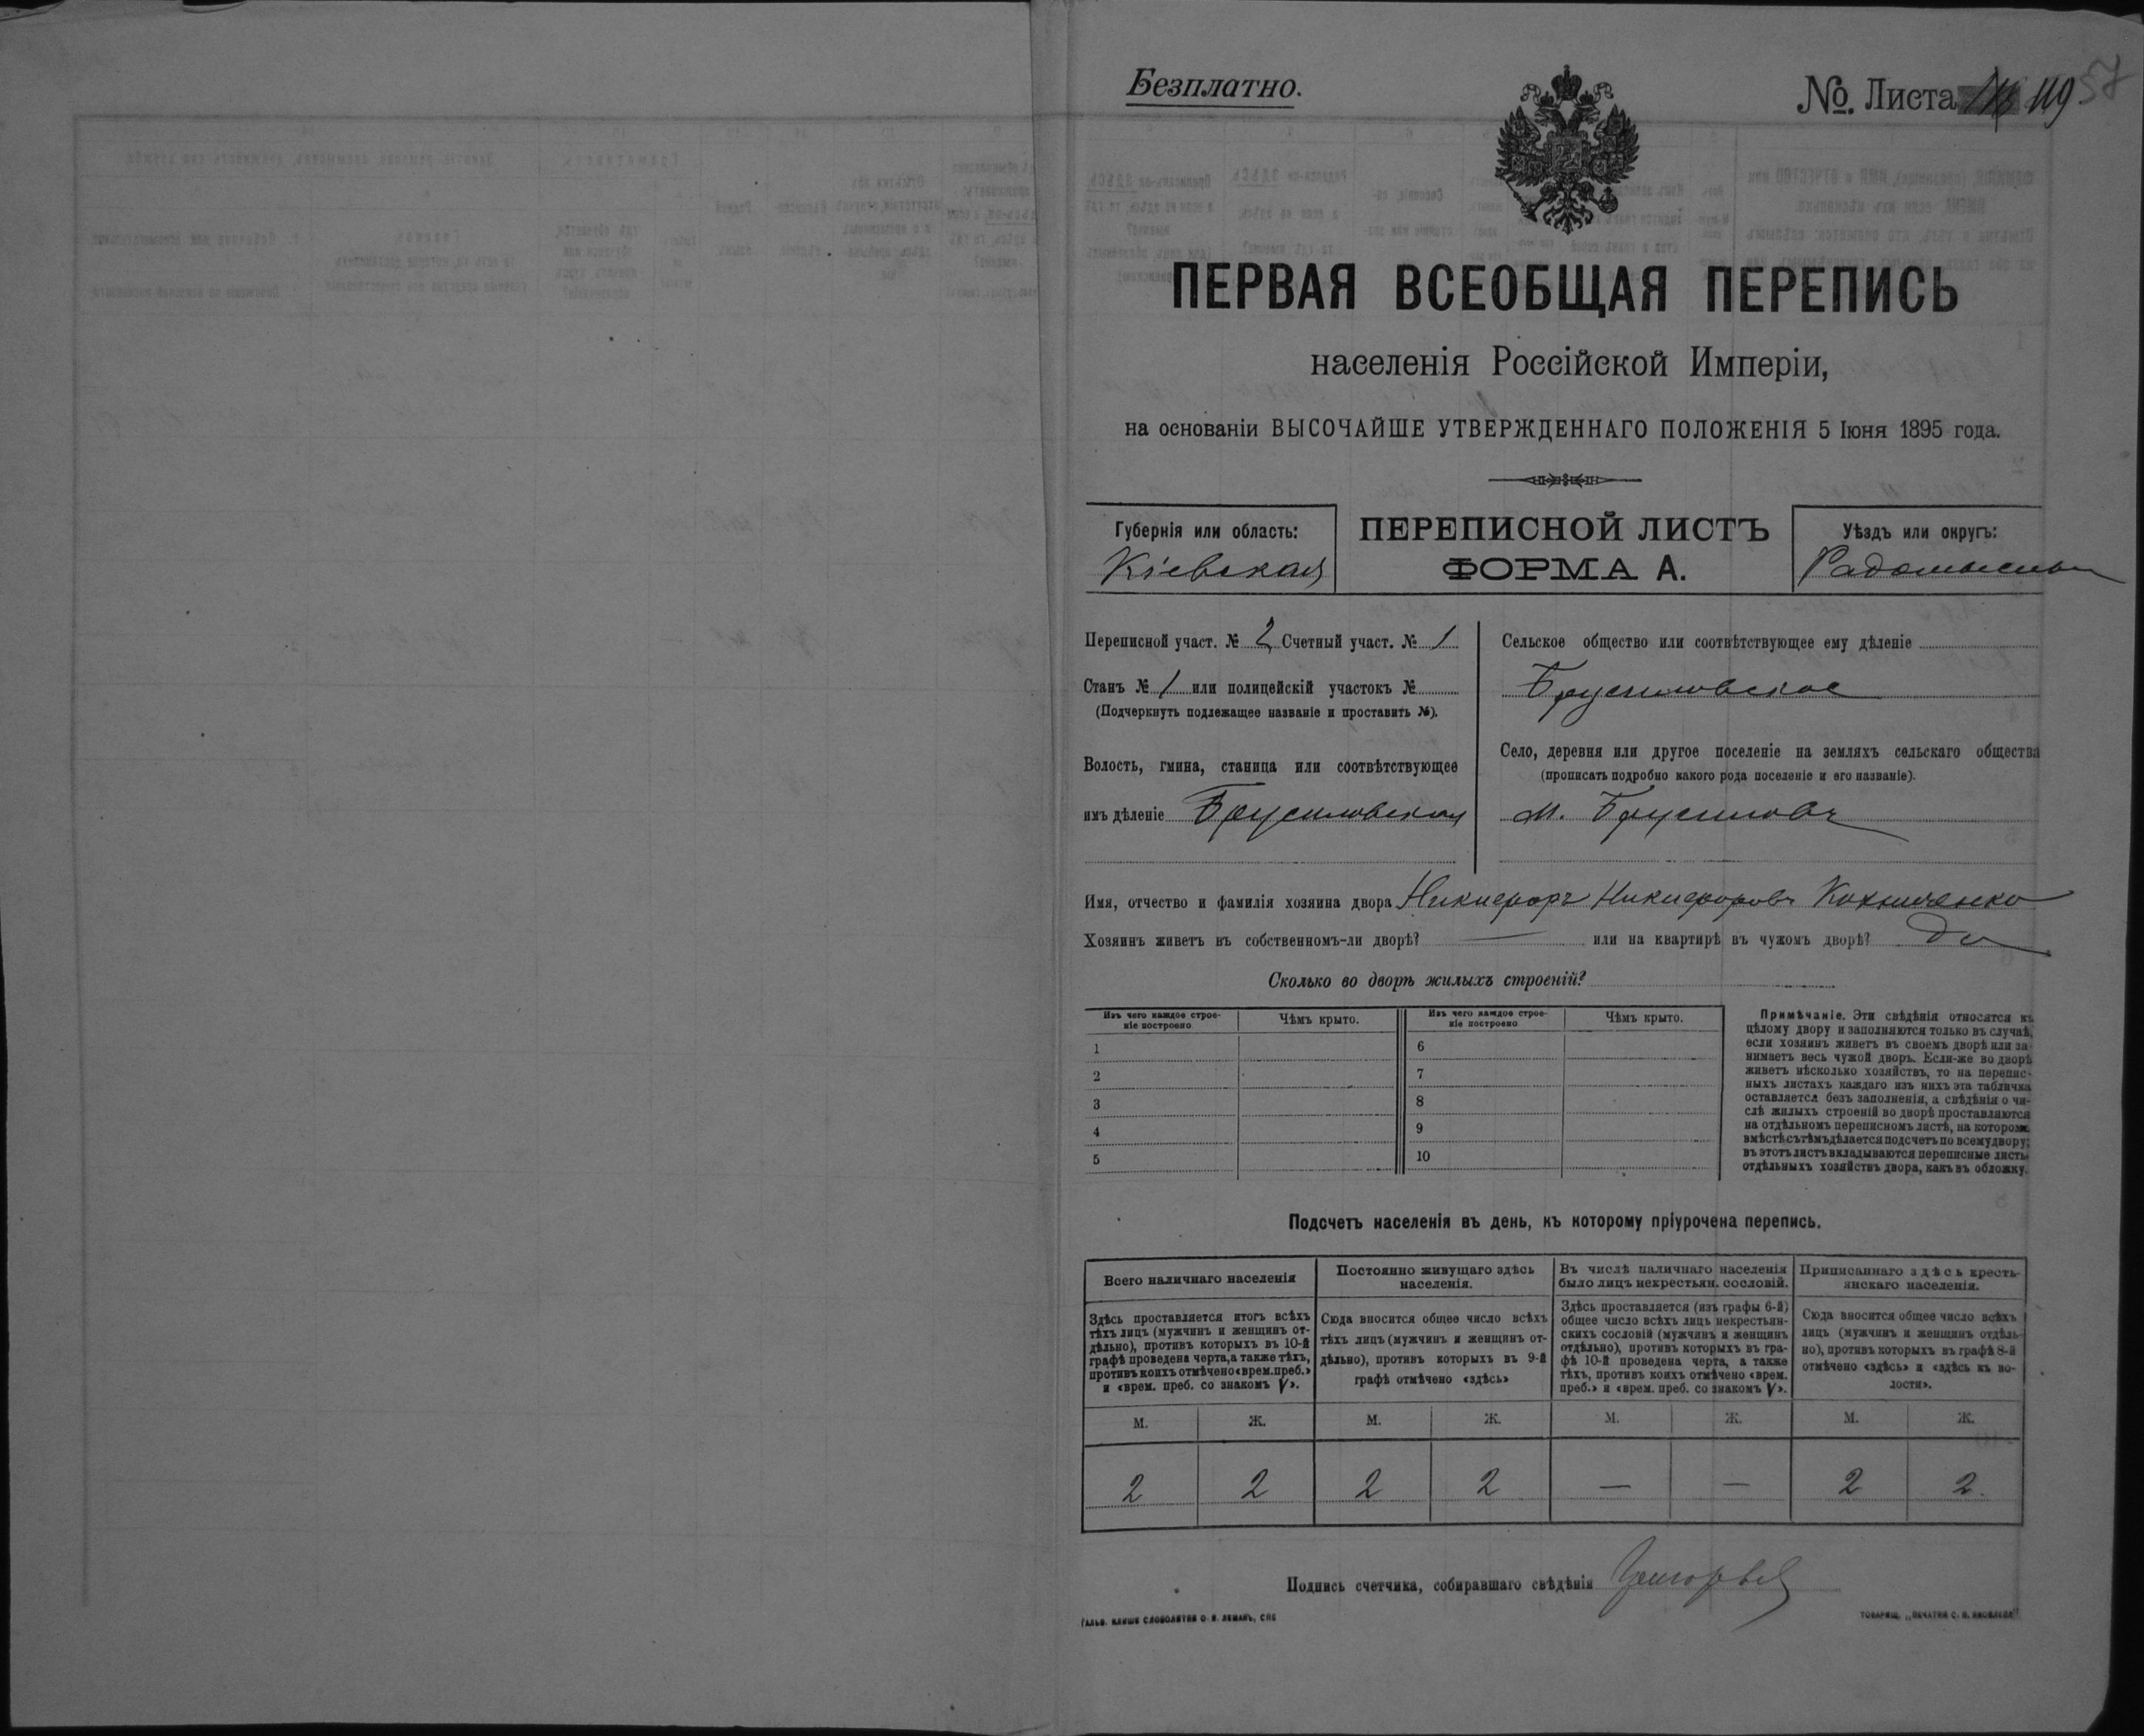 Безплатно.
№ Листа 119 57
ПЕРВАЯ ВСЕОБЩАЯ ПЕРЕПИСЬ
населенія Россійской Имперіи,
на основаніи ВЫСОЧАЙШЕ УТВЕРЖДЕННАГО ПОЛОЖЕНІЯ 5 Іюня 1895 года.
Губернія или область:
Кіевская
ПЕРЕПИСНОЙ ЛИСТЪ
ФОРМА А.
Уѣздъ или округъ:
Переписной участ. № 2 Счетный участ. № 1
Станъ № 1 или полицейскій участокъ №
(Подчеркнуть подлежащее названіе и проставить №).
Волость, гмина, станица или соотвѣтствующее
имъ дѣленіе Брусиловская
Сельское общество или соотвѣтствующее ему дѣленіе
Брусиловское
Село, деревня или другое поселеніе на земляхъ сельскаго общества
(прописать подробно какого рода поселеніе и его названіе).
м. Брусиловъ
Имя, отчество и фамилія хозяина двора Никифоръ Никифоровъ
Хозяинъ живетъ въ собственномъ-ли дворѣ? — или на квартирѣ въ чужомъ дворѣ? да
Сколько во дворѣ жилыхъ строеній?
Изъ чего каждое строе-
ніе построено
Чѣмъ крыто.
Изъ чего каждое строе-
ніе построено
Чѣмъ крыто.
1
2
3
4
5
6
7
8
9
10
Примѣчаніе. Эти свѣдѣнія относятся къ
цѣлому двору и заполняются только въ случаѣ,
если хозяинъ живетъ въ своемъ дворѣ или за-
нимаетъ весь чужой дворъ. Если-же во дворѣ
живетъ нѣсколько хозяйствъ, то на перепис-
ныхъ листахъ каждаго изъ нихъ эта табличка
оставляется безъ заполненія, а свѣдѣнія о чи-
слѣ жилыхъ строеній во дворѣ проставляются
на отдѣльномъ переписномъ листѣ, на которомъ
вмѣстѣ съ тѣмъ дѣлается подсчетъ по всему двору;
въ этотъ листъ вкладываются переписные листы
отдѣльныхъ хозяйствъ двора, какъ въ обложку.
Подсчетъ населенія въ день, къ которому пріурочена перепись.
Всего наличнаго населенія
Здѣсь проставляется итогъ всѣхъ
тѣхъ лицъ (мужчинъ и женщинъ от-
дѣльно), противъ которыхъ въ 10-й
графѣ проведена черта, а также тѣхъ,
противъ коихъ отмѣчено «врем. преб.»
и «врем. преб. со знакомъ V».
Постоянно живущаго здѣсь
населенія.
Сюда вносится общее число всѣхъ
тѣхъ лицъ (мужчинъ и женщинъ от-
дѣльно), противъ которыхъ въ 9-й
графѣ отмѣчено «здѣсь»
Въ числѣ наличнаго населенія
было лицъ некрестьян. сословій.
Здѣсь проставляется (изъ графы 6-й)
общее число всѣхъ лицъ некрестьян-
скихъ сословій (мужчинъ и женщинъ
отдѣльно), противъ которыхъ въ гра-
фѣ 10-й проведена черта, а также
тѣхъ, противъ коихъ отмѣчено «врем.
преб.» и «врем. преб. со знакомъ V».
Приписаннаго здѣсь кресть-
янскаго населенія.
Сюда вносится общее число всѣхъ
лицъ (мужчинъ и женщинъ отдѣль-
но), противъ которыхъ въ графѣ 8-й
отмѣчено «здѣсь» и «здѣсь къ во-
лости».
М. Ж. М. Ж. М. Ж. М. Ж.
2 2 2 2 — — 2 2.
Подпись счетчика, собиравшаго свѣдѣнія Григорьев
ГАЛЬВ. КЛИШЕ СЛОВОЛИТНИ О. И. ЛЕМАНЪ, СПБ
ТОВАРИЩ. „ПЕЧАТНЯ С. П. ЯКОВЛЕВА"